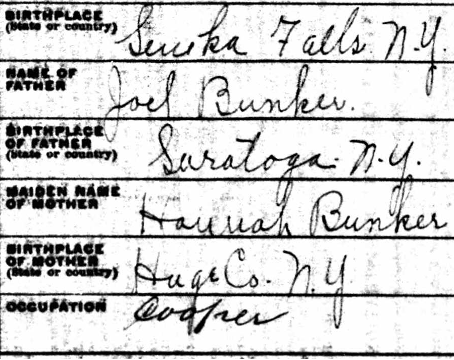 BIRTHPLACE
(State or country) Seneka Falls N.Y.
NAME OF
FATHER Joel Bunker.
BIRTHPLACE
OF FATHER
(State or country) Saratoga. N.Y.
MAIDEN NAME
OF MOTHER Hannah Bunker
BIRTHPLACE
OF MOTHER
(State or country) Co. N.Y
OCCUPATION Cooper